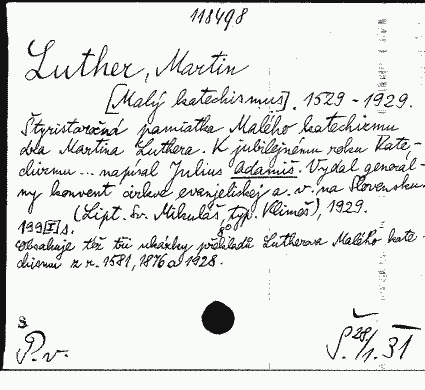 118498
Luther, Martin
[Malý katechismus]. 1529-1929.
Štyristoročná pamiatka Malého katechizmu
dra Martina Luthera. K jubilejnému roku Kate-
chizmu... napísal Julius Adamiš. Vydal generál-
ny konvent cirkve evanjelickej a. v. na Slovensku.
(Lipt. Sv. Mikuláš, typ. Klimeš), 1929.
199[I] s. 8°
Obsahuje též tři ukázky překladů Lutherova Malého kate-
chismu z r. 1581, 1876 a 1928.
8
P.v.
Š. 28/1. 31